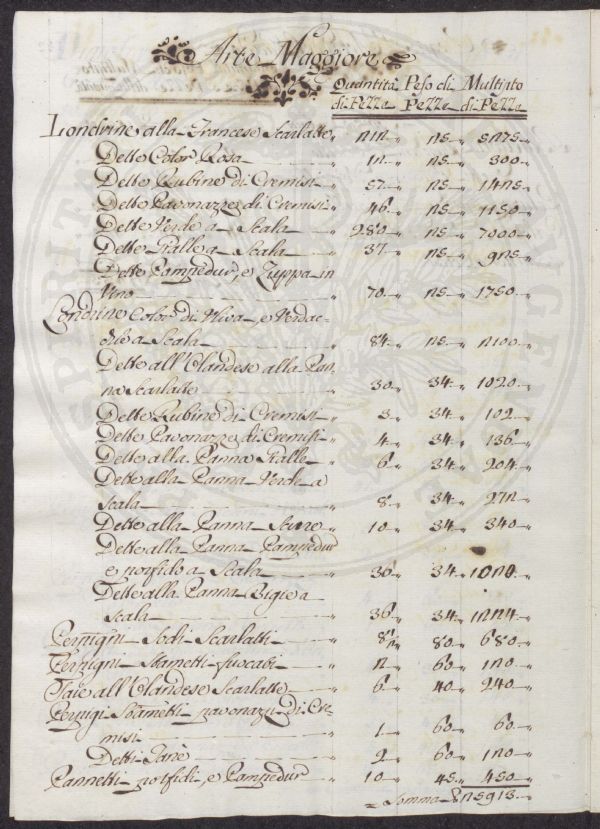 Arte Maggiore
Quantità Peso di Multipto
di Pezza Pezze di Pezza
Londrine alla Francese Scarlatte 211 25 5275
Dette Color Rosa 12 25 300
Dette Rubine di Cremisi 57 25 1425
Dette Pavonazze di Cremisi 46 25 1150
Dette Verde a Scala 280 25 7000
Dette Gialle a Scala 37 25 925
Dette Pampedur, e Zuppa in
Vino 70 25 1750
Londrine Color di Uliva, e Verdac-
chio a Scala 84 25 2100
Dette all'Olandese alla Pan-
na Scarlatte 30 34 1020
Dette Rubine di Cremisi 3 34 102
Dette Pavonazze di Cremisi 4 34 136
Dette alla Panna Gialle 6 34 204
Dette alla Panna Verde a
Scala 8 34 272
Dette alla Panna 10 34 340
Dette alla Panna Pampedur
e porfido a Scala 30 34 1020
Dette alla Panna Bigie a
Scala 36 34 1224
Perpigni Sodi Scarlatti 8½ 80 680
Perpigni Stametti 2 60 120
Saie all'Olandese Scarlatte 6 40 240
Perpigni Stametti pavonazzi di Cre-
misi 1 60 60
Detti Tanè 2 60 120
Pannetti porfidi, e Pampedur 10 45 450
Somma 25913